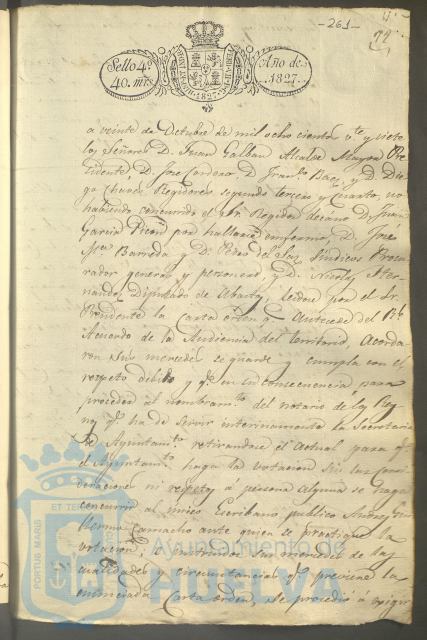 -261-
Sello 4º
40. mrs
Año de
1827.
a veinte de Octubre de mil ocho cientos vte y siete
los Señores D. Juan Galban Alcalde Mayor Pre
sidente, D. Jose Cordero D. Franco Baez y D. Die
go Chaves Regidores segundo tercero y cuarto, no
habiendo concurrido el Regidor decano D. Juan
Garcia por hallarse enfermo, D. José
Ma Barreda y D. Pedro del Saz Sindicos Procu
rador general y personero, y D. Nicolas Her
nandez Diputado de Abasto, leidose por el Sr
Presidente la carta orden Antecede del Rl
Acuerdo de la Audiencia del territorio, Acorda
ron sus mercedes se guarde y cumpla con el
respeto debido y qe en su consecuencia para
proceder al nombramto del notario de los Rey
nos qe ha de servir interinamente la Secretaria
de Ayuntamto retirandose el actual para qe
el Ayuntamto haga la votacion sin las consi
deraciones ni respeto á persona alguna se haga
concurrir al unico Escribano publico
Camacho ante quien se practique la
votacion, e instruidos sus mercedes de las
cualidades y circunstancias qe previene la
enunciada Carta orden, se procedió á
ET TE
PORTUS MARIS
Ayuntamiento de
HUELVA